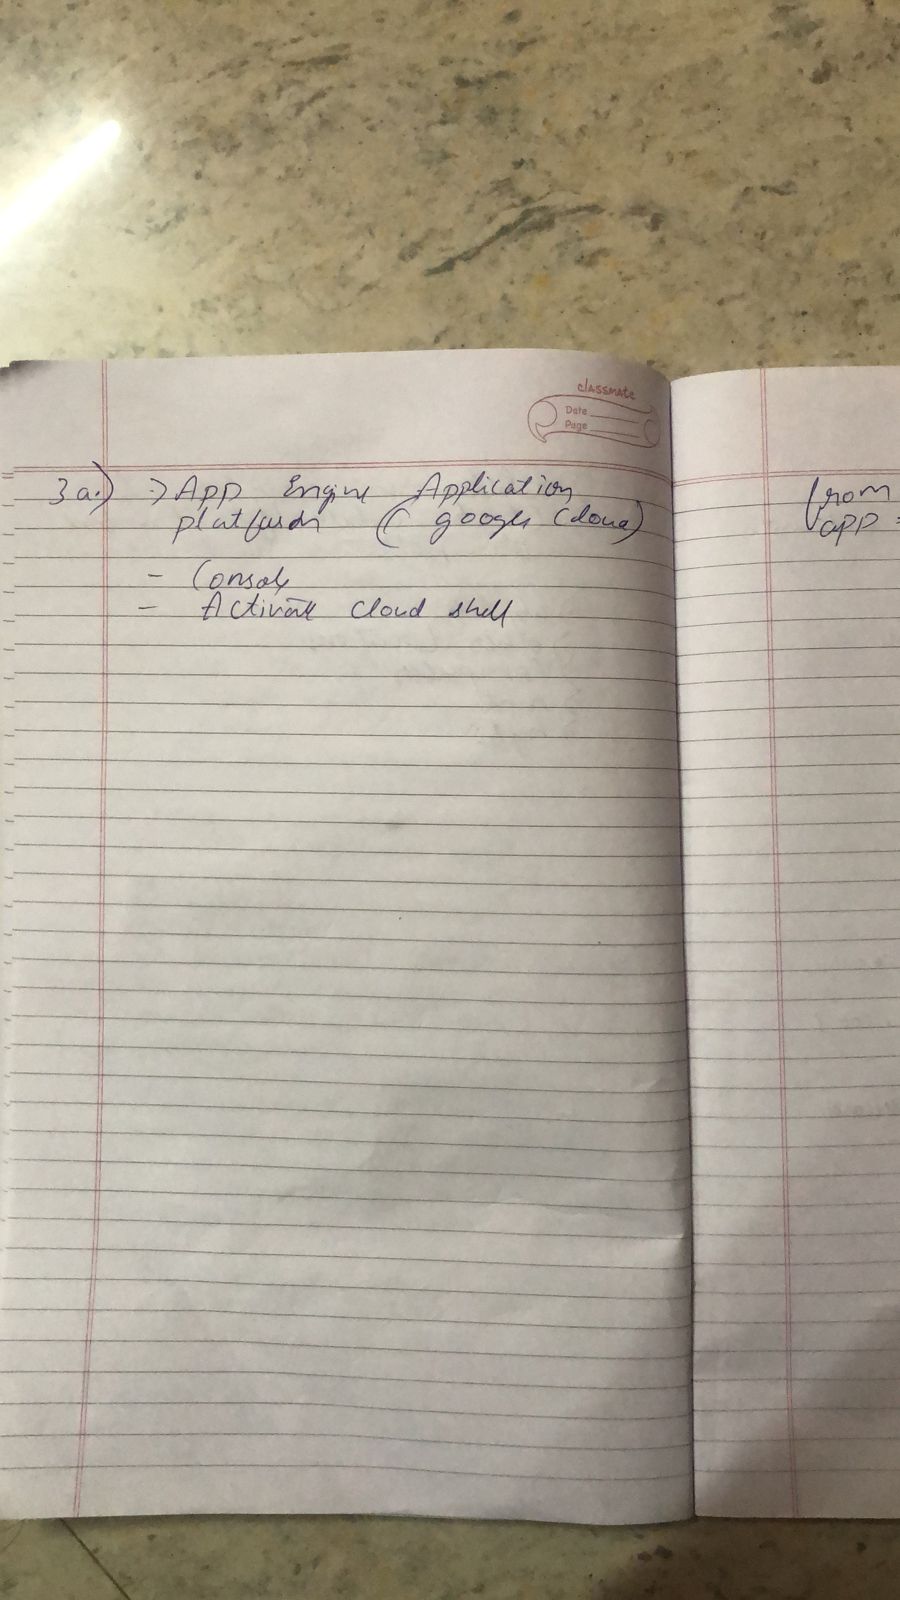 classmate
Date
Page
3a.) → App Engine Application
platform (google cloud)
- Console
- Activate cloud shell
from
app =